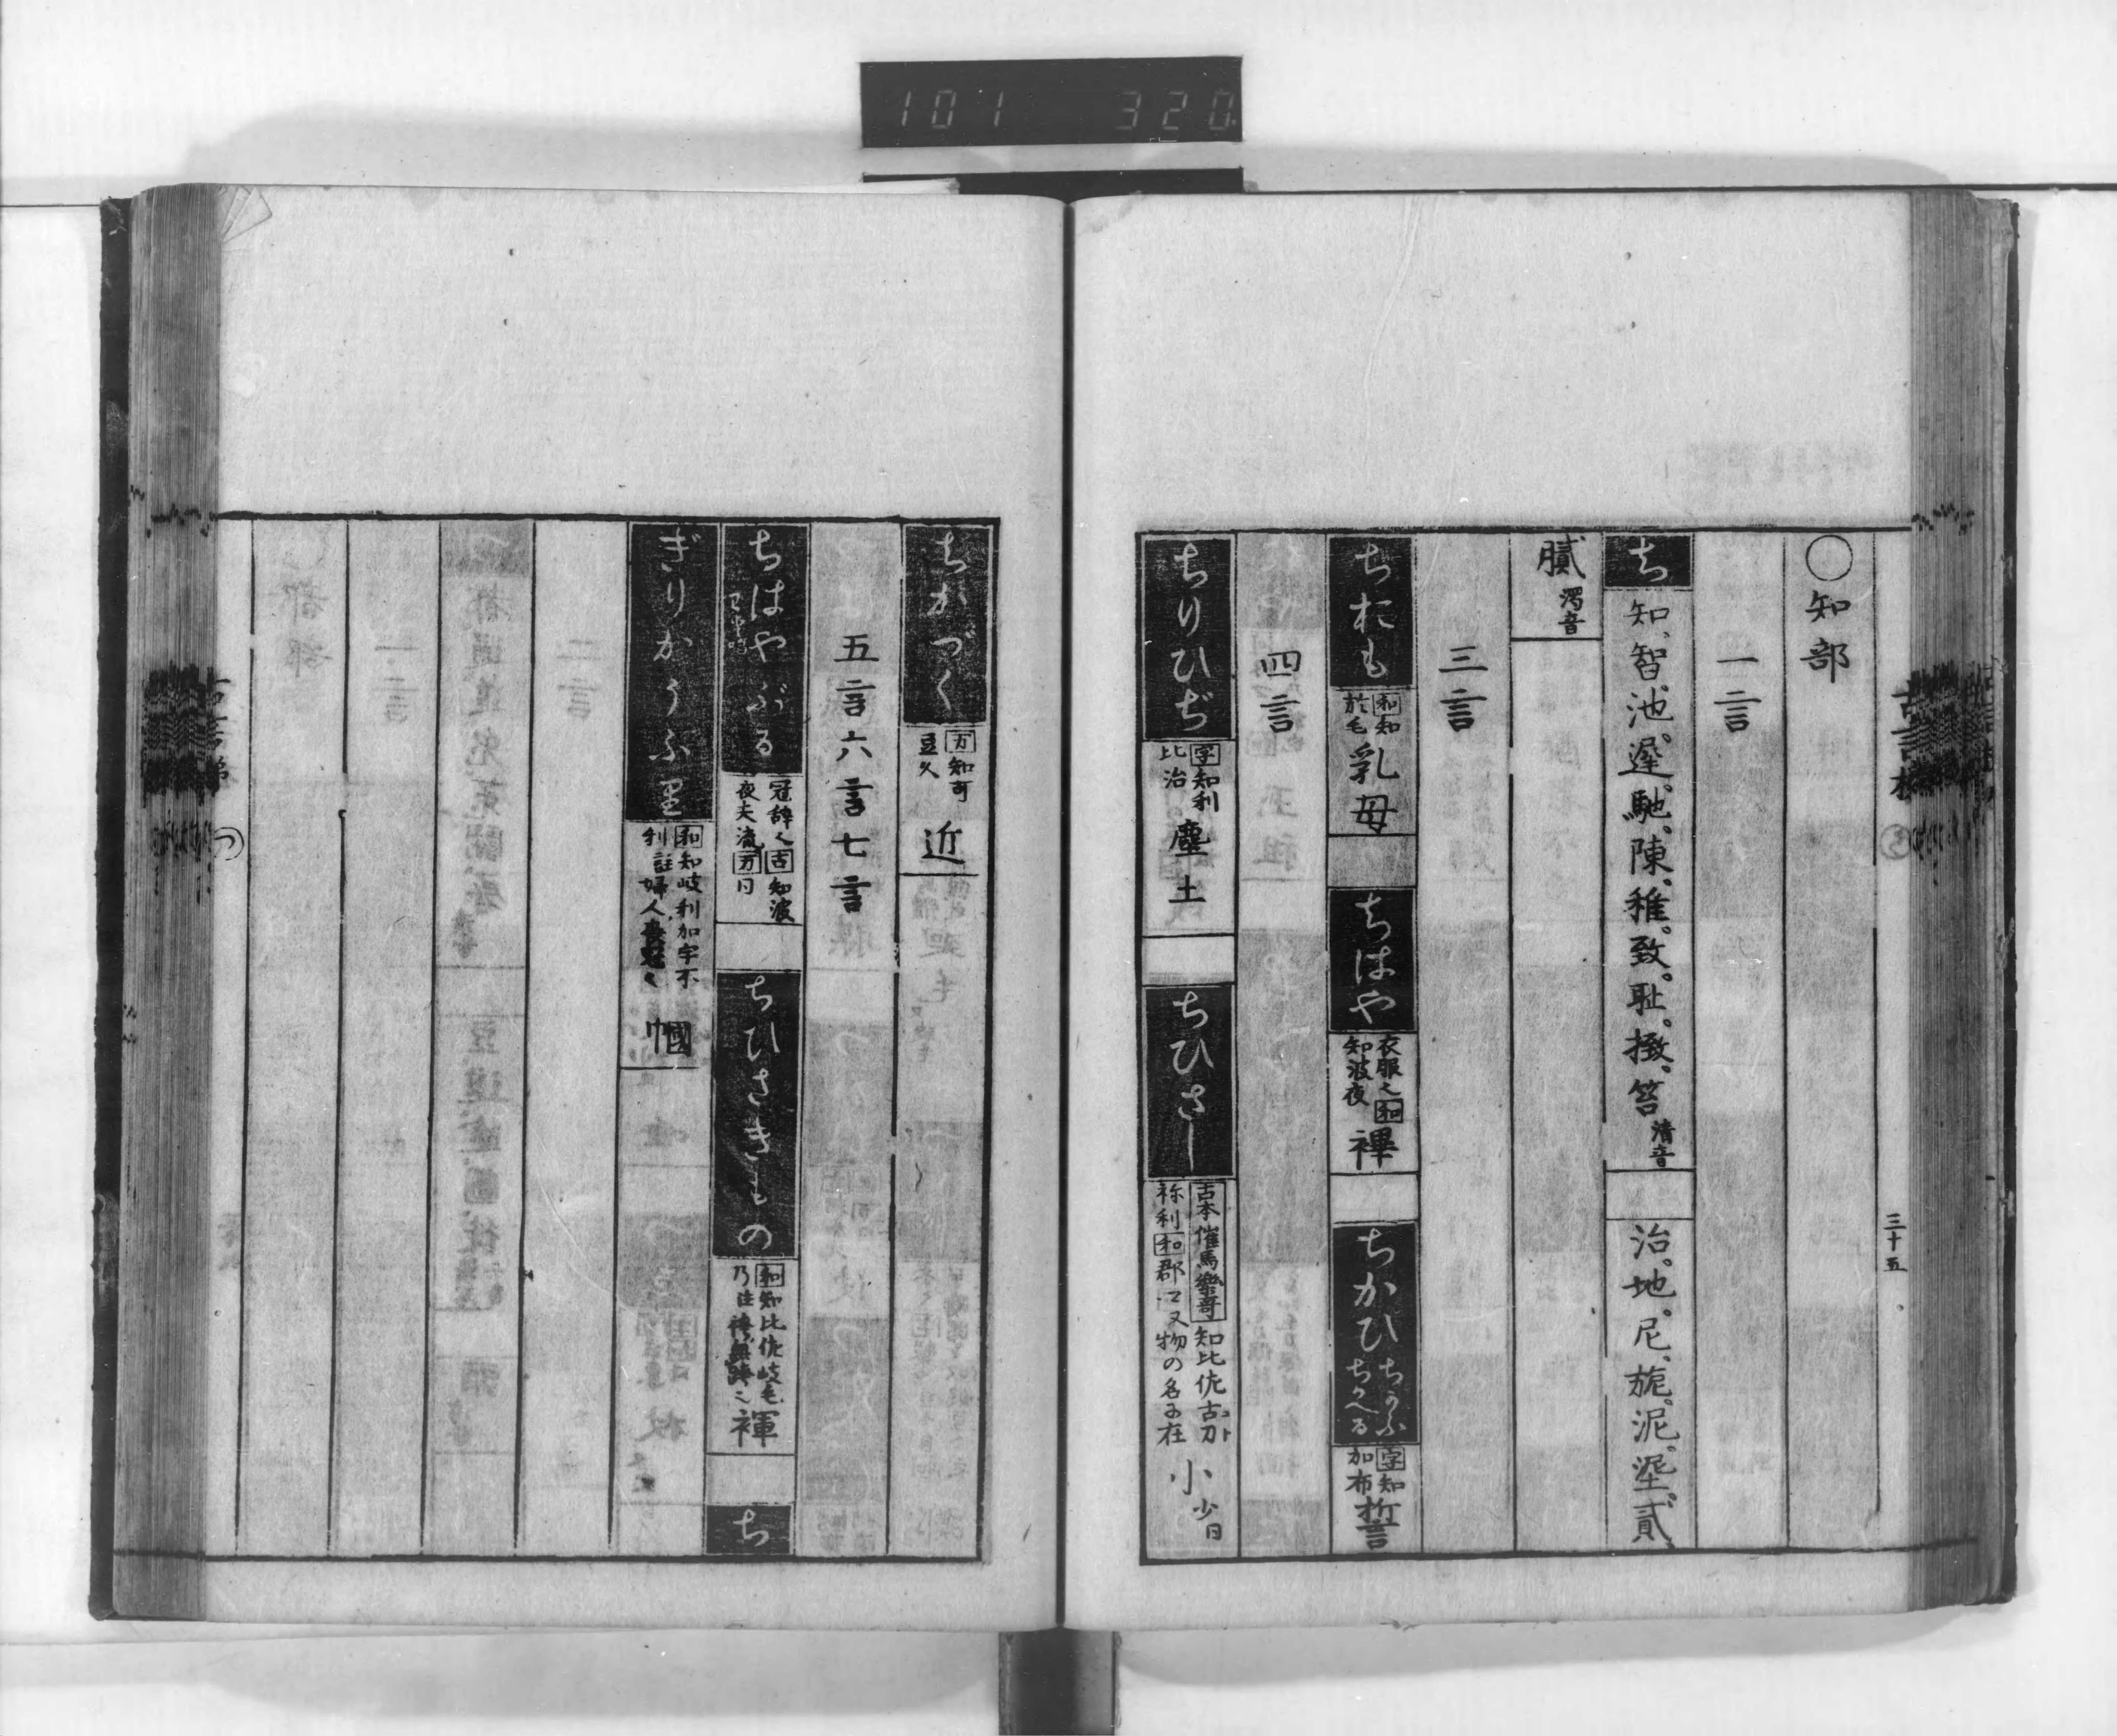 101 320
○知部
一言
ち 知、智、池、遅、馳、陳、稚、致、耻、撽、笞 清音 治、地、尼、旎、泥、埿、貳
膩 濁音
三言
ちおも 和 知於毛 乳母 ちはや 衣服〻 和 知波夜 襅 ちかひ ちかふ ちへる 字 知加布 誓
四言
ちりひぢ 字 知利比治 塵土 ちひさし 古本催馬樂哥 知比佐古加祢利 和 郡 又物の名に在 小 少 日
三十五
ちかづく 万 知可豆久 近
五言六言七言
ちはやぶる 冠辞〻 古 知波夜夫流 万 日 ちひさきもの 和 知比佐岐毛乃 註 褌 ち
ぎりかうふ里 和 知岐利加宇不利 註 婦人 〻 幗